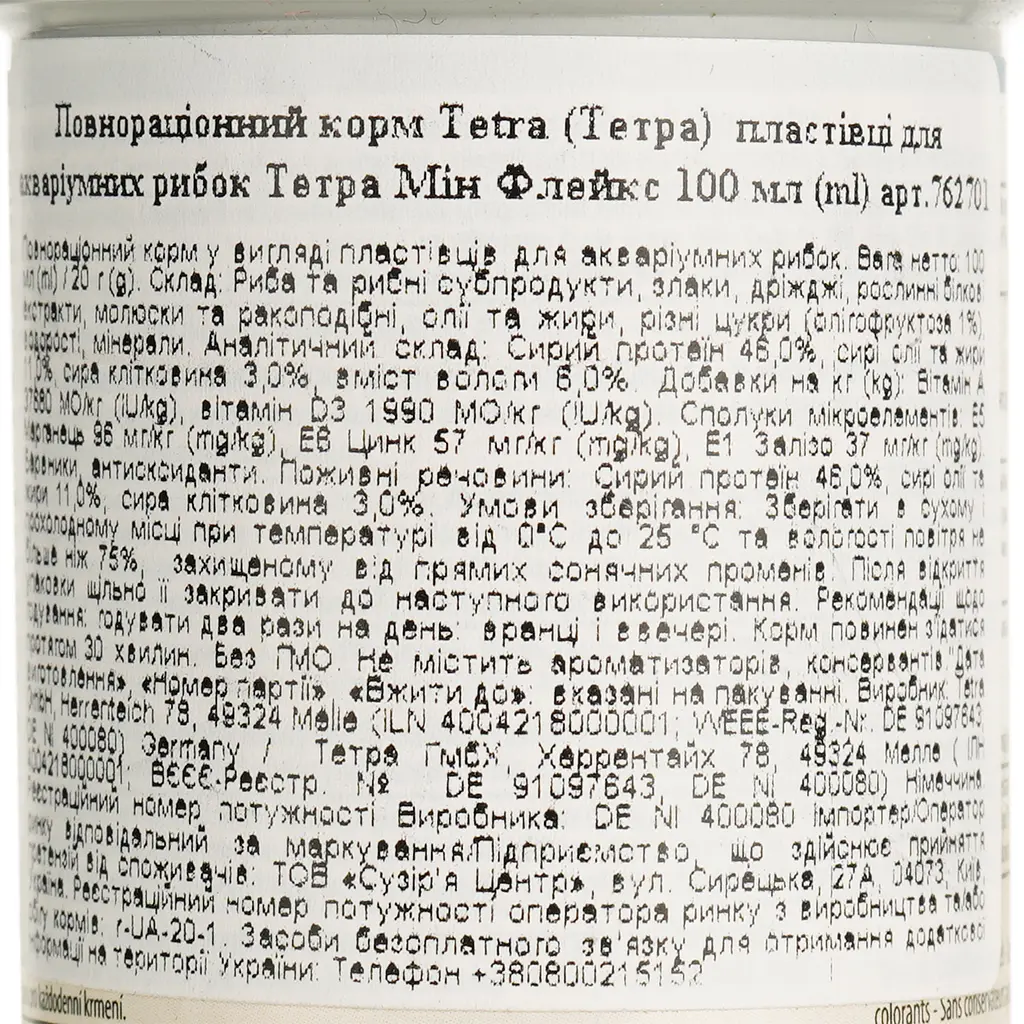 Повнораціонний корм Tetra (Тетра) пластівці для
акваріумних рибок Тетра Мін Флейкс 100 мл (ml) арт.762701
Повнораціонний корм у вигляді пластівців для акваріумних рибок. Вага нетто: 100
мл (ml) / 20 г (g). Склад: Риба та рибні субпродукти, злаки, дріжджі, рослинні білкові
екстракти, молюски та ракоподібні, олії та жири, різні цукри (олігофруктоза 1%),
водорості, мінерали. Аналітичний склад: Сирий протеїн 46,0%, сирі олії та жири
11,0%, сира клітковина 3,0%, вміст вологи 6,0%. Добавки на кг (kg): Вітамін А
37680 МО/кг (IU/kg), вітамін D3 1990 МО/кг (IU/kg). Сполуки мікроелементів: E5
Марганець 96 мг/кг (mg/kg), E6 Цинк 57 мг/кг (mg/kg), E1 Залізо 37 мг/кг (mg/kg).
Барвники, антиоксиданти. Поживні речовини: Сирий протеїн 46,0%, сирі олії та
жири 11,0%, сира клітковина 3,0%. Умови зберігання: Зберігати в сухому і
прохолодному місці при температурі від 0°C до 25 °C та вологості повітря не
більше ніж 75%, захищеному від прямих сонячних променів. Після відкриття
упаковки щільно її закривати до наступного використання. Рекомендації щодо
годування: годувати два рази на день: вранці і ввечері. Корм повинен з'їдатися
протягом 30 хвилин. Без ГМО. Не містить ароматизаторів, консервантів "Дата
виготовлення», «Номер партії», «Вжити до»: вказані на пакуванні. Виробник: Tetra
GmbH, Herrenteich 78, 49324 Melle (ILN 4004218000001; WEEE-Reg.-Nr. DE 91097643,
DE NI 400080) Germany / Тетра ГмбХ, Херрентайх 78, 49324 Мелле ( ІЛН
4004218000001; ВЄЄЄ-Реєстр. № DE 91097643, DE NI 400080) Німеччина.
Реєстраційний номер потужності Виробника: DE NI 400080 Імпортер/Оператор
ринку відповідальний за маркування/Підприємство, що здійснює прийняття
претензій від споживачів: ТОВ «Сузір'я Центр», вул. Сирецька, 27А, 04073, Київ,
Україна. Реєстраційний номер потужності оператора ринку з виробництва та/або
обігу кормів: r-UA-20-1. Засоби безплатного зв'язку для отримання додаткової
інформації на території України: Телефон +380800215152
každodenní krmení.
colorants - Sans